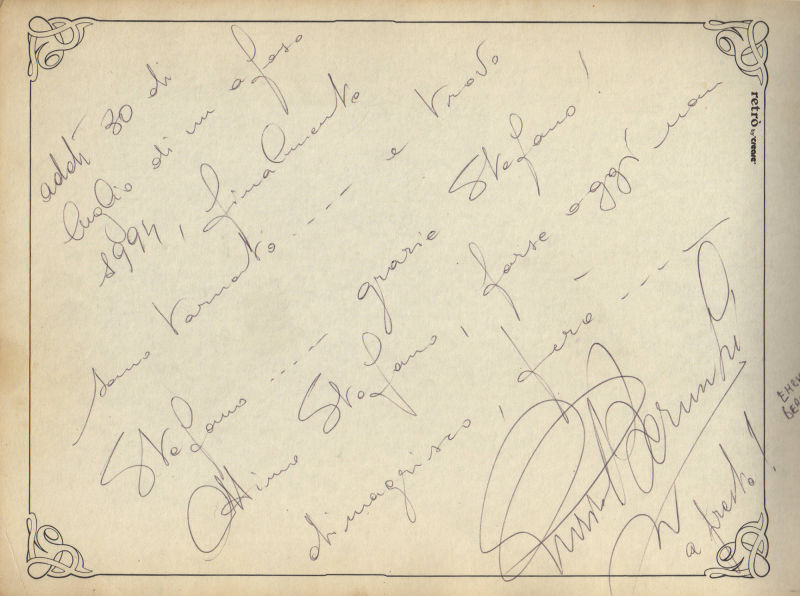 addì 30 di
luglio di un afoso
1994, finalmente
sono tornato .... e trovo
Stefano .... grazie Stefano!
Ottimo Stefano, forse oggi non
dimagrisco, però ....
a presto!
retrò by "CREARE"